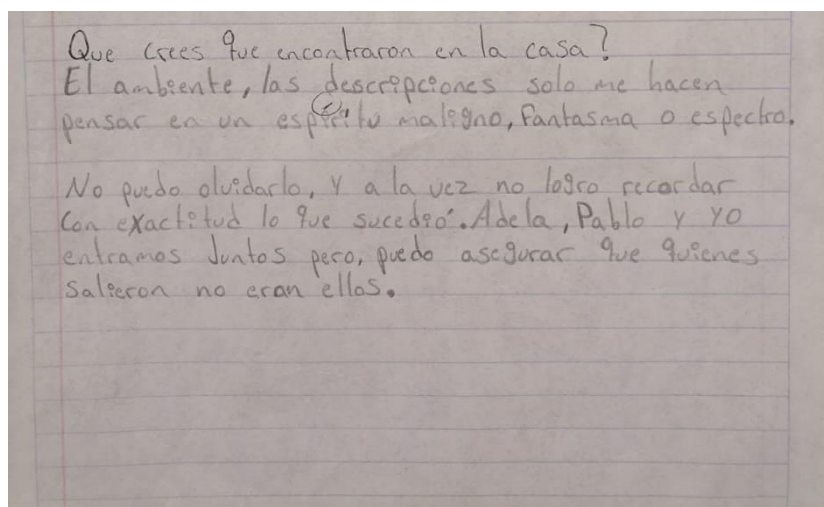 Que crees que encontraron en la casa?
El ambiente, las descripciones solo me hacen
pensar en un espíritu maligno, fantasma o espectro.
No puedo olvidarlo, y a la vez no logro recordar
con exactitud lo que sucedió. Adela, Pablo y yo
entramos juntos pero, puedo asegurar que quienes
salieron no eran ellos.